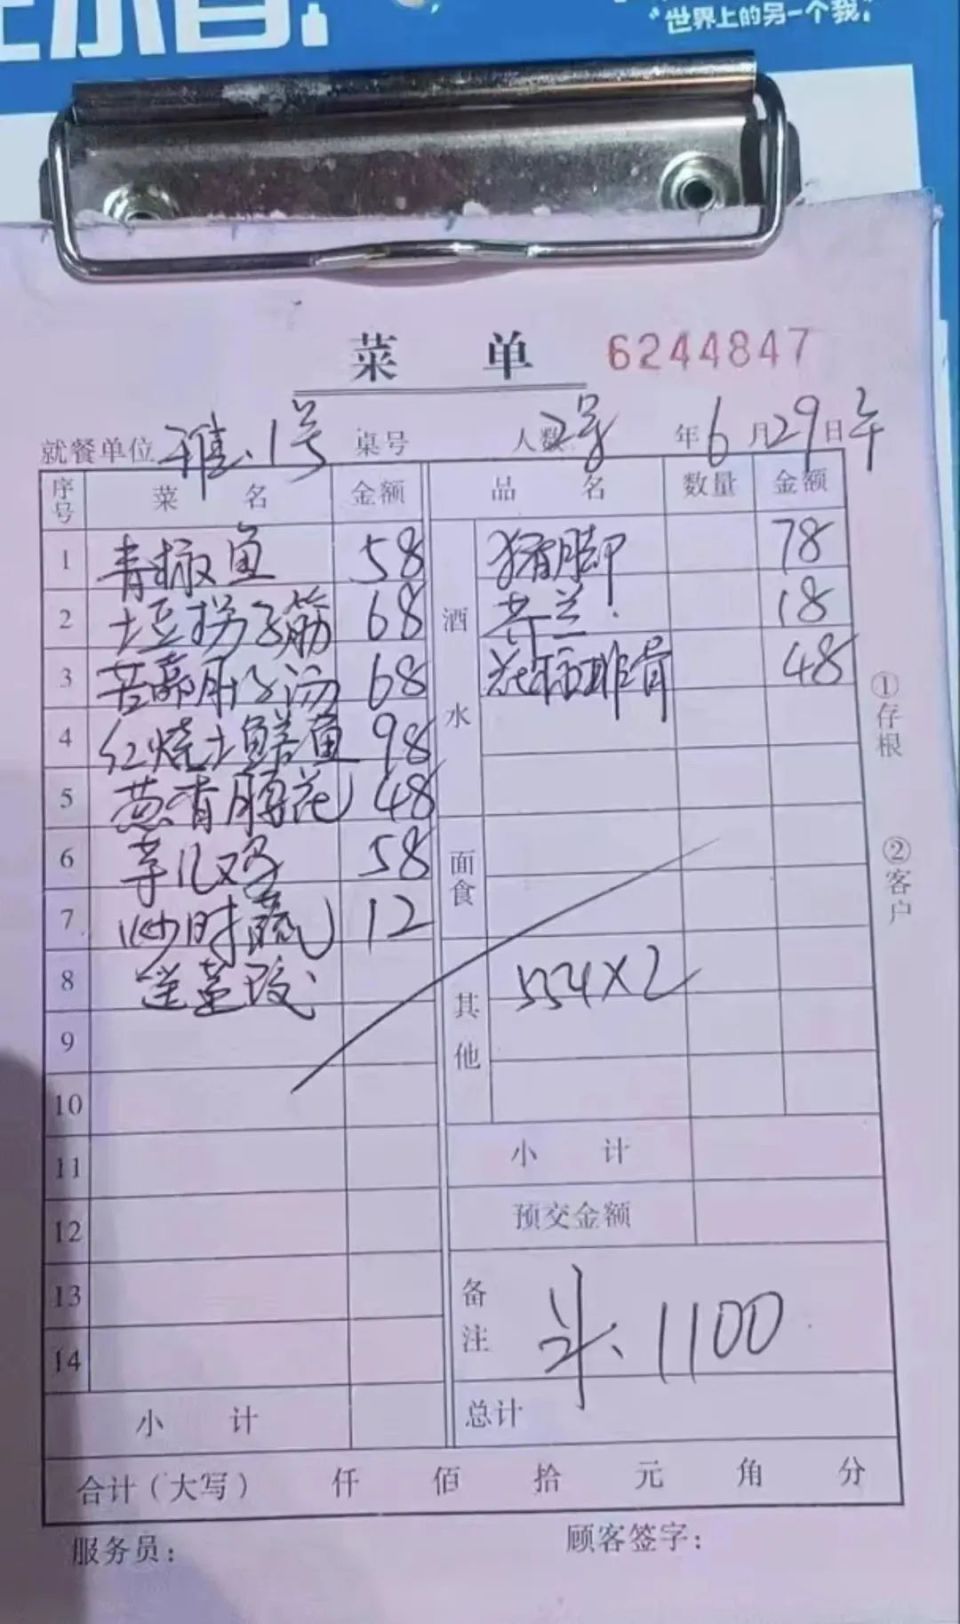 "世界上的另一个我"
菜 单 6244847
就餐单位 雅.1号 桌号 人数 2号 年6月29日午
序号 菜 名 金额 品 名 数量 金额
1 青椒鱼 58 酒水 猪脚 78
2 土豆拐子筋 68 芥兰 18
3 肚子汤 68 排骨 48
4 红烧土鳝鱼 98
5 葱香腰花 48
6 芋儿鸡 58 面食
7 炒时蔬 12
8 送 其他 554×2
9
10
11 小 计
12 预交金额
13 备注 1100
14
小 计 总计
合计(大写) 仟 佰 拾 元 角 分
服务员: 顾客签字:
①存根
②客户